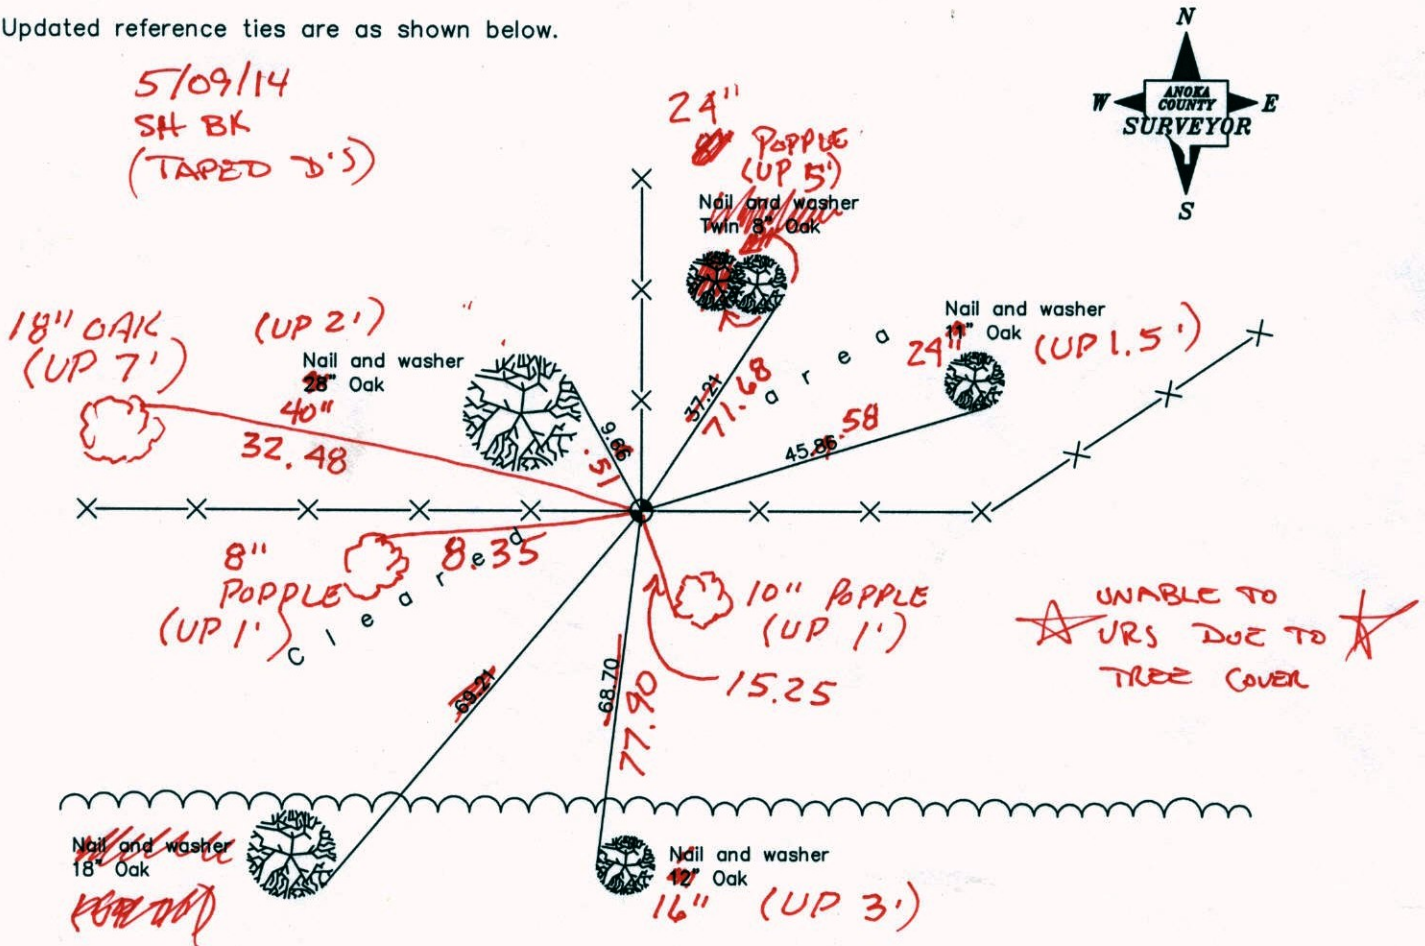 Updated reference ties are as shown below.
5/09/14
SH BK
(TAPED D'S)
N
W
E
S
ANOKA
COUNTY
SURVEYOR
24"
POPPLE
(UP 5')
Nail and washer
Twin 8" Oak
18" OAK
(UP 7')
(UP 2')
Nail and washer
28" Oak
40"
32.48
9.66
.51
37.21
71.68
Nail and washer
11" Oak
24"
(UP 1.5')
45.86
.58
Cleared area
8"
POPPLE
(UP 1')
8.35
10" POPPLE
(UP 1')
15.25
UNABLE TO
VRS DUE TO
TREE COVER
69.21
68.70
77.90
Nail and washer
18" Oak
Nail and washer
12" Oak
16" (UP 3')